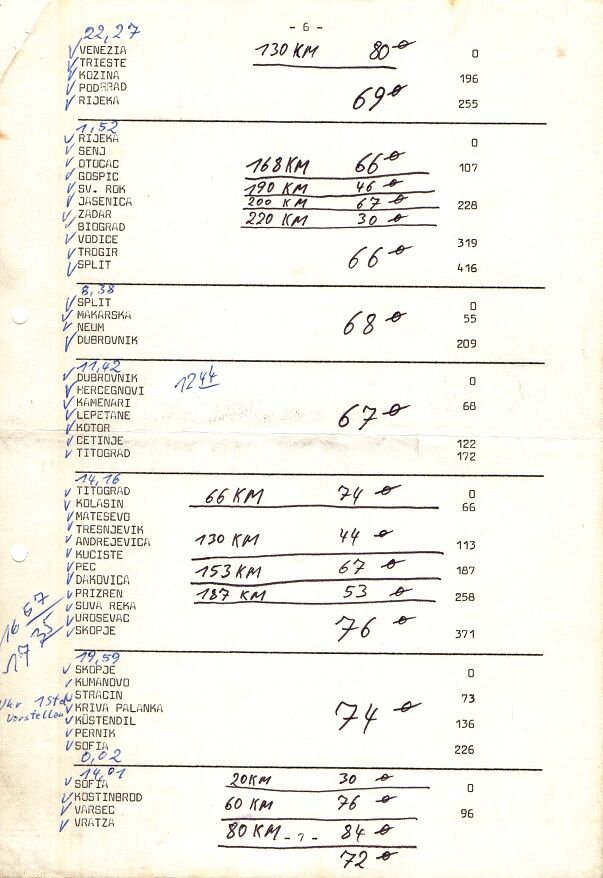 - 6 -
22,27
VENEZIA 130 KM 80 ø 0
TRIESTE
KOZINA 196
PODGRAD
RIJEKA 69 ø 255
1,52
RIJEKA 0
SENJ
OTOCAC 168 KM 66 ø 107
GOSPIC
SV. ROK 190 KM 46 ø
JASENICA 200 KM 67 ø 228
ZADAR 220 KM 30 ø
BIOGRAD
VODICE 319
TROGIR 66 ø
SPLIT 416
8,38
SPLIT 0
MAKARSKA 68 ø 55
NEUM
DUBROVNIK 209
11,42
DUBROVNIK 1244 0
HERCEGNOVI
KAMENARI 68
LEPETANE 67 ø
KOTOR
CETINJE 122
TITOGRAD 172
14,16
TITOGRAD 66 KM 74 ø 0
KOLASIN 66
MATESEVO
TRESNJEVIK
ANDREJEVICA 130 KM 44 ø 113
KUCISTE
PEC 153 KM 67 ø 187
DAKOVICA
PRIZREN 187 KM 53 ø 258
SUVA REKA
UROSEVAC 76 ø
SKOPJE 371
16 57
17 35
19,59
SKOPJE 0
KUMANOVO
STRACIN 73
Uhr 1 Std vorstellen
KRIVA PALANKA 74 ø
KÜSTENDIL 136
PERNIK
SOFIA 226
0,02
14,01
SOFIA 20 KM 30 ø 0
KOSTINBROD 60 KM 76 ø
VARSEC 96
VRATZA 80 KM - ? - 84 ø
72 ø